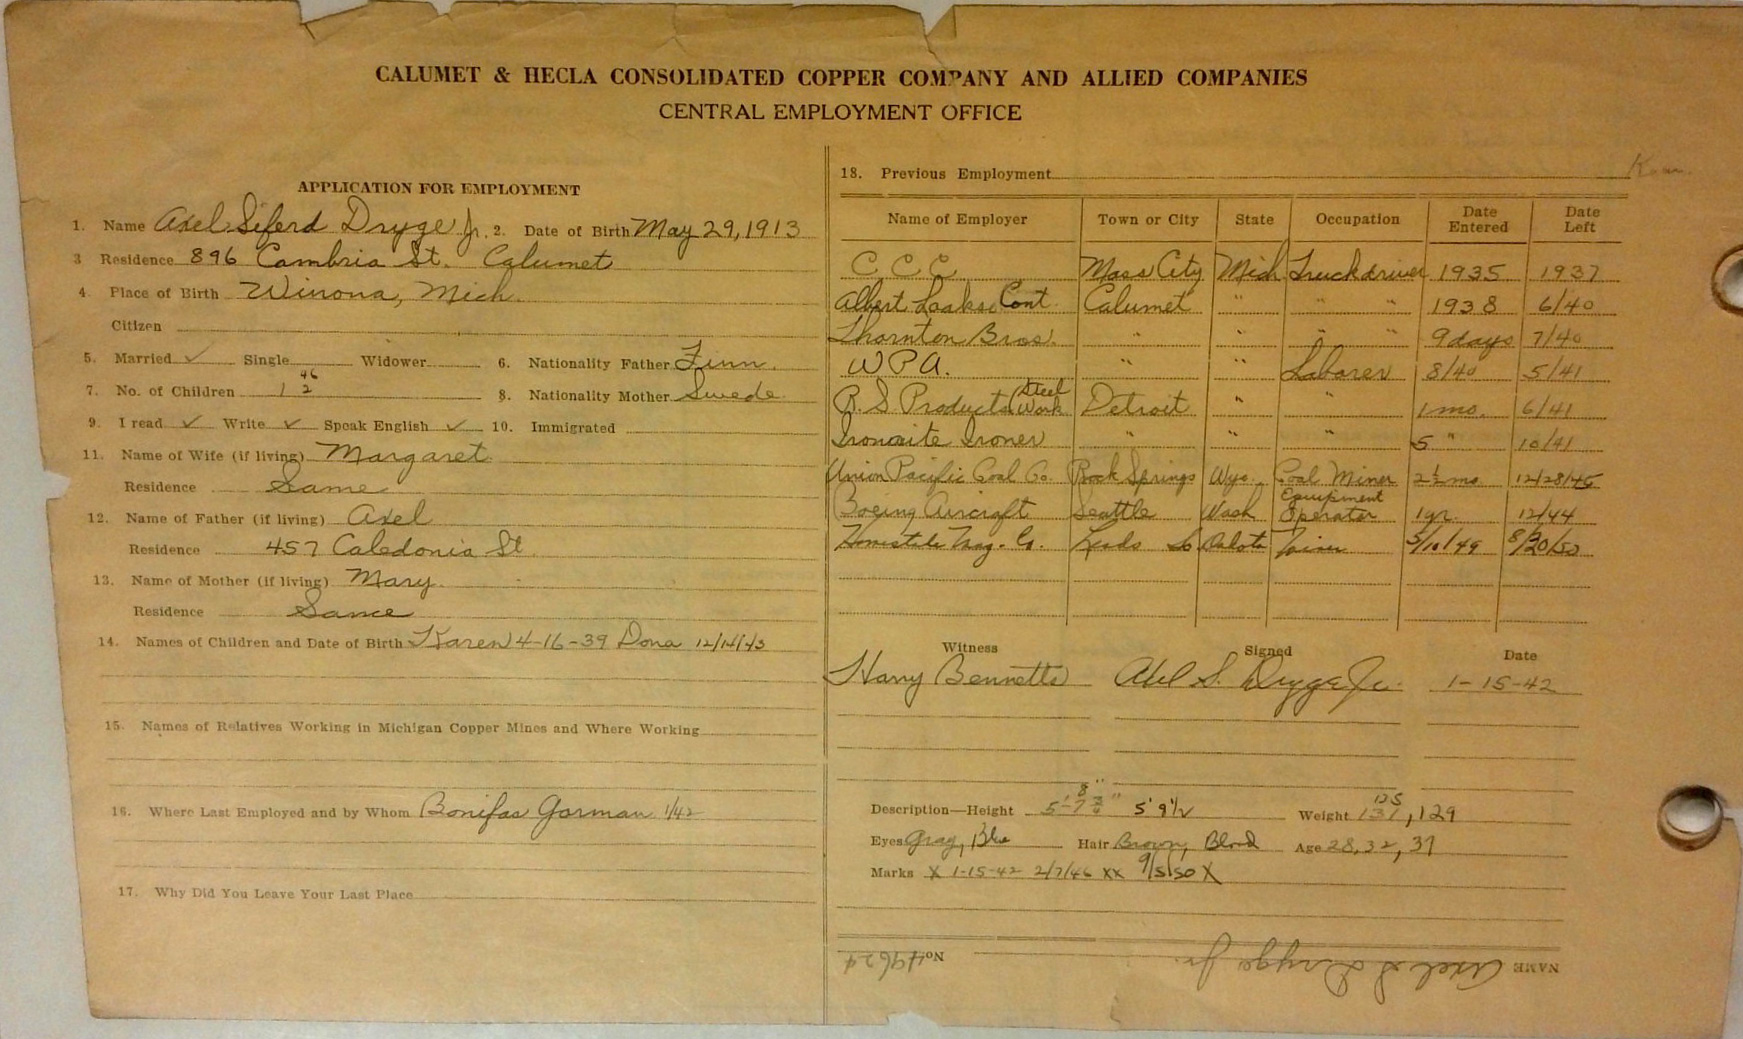 CALUMET & HECLA CONSOLIDATED COPPER COMPANY AND ALLIED COMPANIES
CENTRAL EMPLOYMENT OFFICE
APPLICATION FOR EMPLOYMENT
1. Name Axel Siferd Dryge Jr. 2. Date of Birth May 29, 1913
3 Residence 896 Cambria St. Calumet
4. Place of Birth Winona, Mich.
Citizen
5. Married ✓ Single Widower 6. Nationality Father Finn.
7. No. of Children 1 2 46 8. Nationality Mother Swede
9. I read ✓ Write ✓ Speak English ✓ 10. Immigrated
11. Name of Wife (if living) Margaret
Residence Same
12. Name of Father (if living) Axel
Residence 457 Caledonia St.
13. Name of Mother (if living) Mary
Residence Same
14. Names of Children and Date of Birth Karen 4-16-39 Dona 12/14/43
15. Names of Relatives Working in Michigan Copper Mines and Where Working
16. Where Last Employed and by Whom Bonifas Gorman 1/42
17. Why Did You Leave Your Last Place
18. Previous Employment
Name of Employer Town or City State Occupation Date Entered Date Left
C C C Mass City Mich Truckdriver 1935 1937
Albert Laakso Cont. Calumet " " " 1938 6/40
Thornton Bros. " " " " 9 days 7/40
W P A. " " Laborer 8/40 5/41
R. S. Products (Steel Work Detroit " " 1 mo. 6/41
Ironrite Ironer " " " 5 " 10/41
Union Pacific Coal Co. Rock Springs Wyo. Coal Miner 2½ mo. 12/28/45
Boeing Aircraft Seattle Wash Equipment Operator 1 yr. 12/44
Homestake Mng. Co. Leads So Dakota Miner 5/10/49 8/30/50
Witness Signed Date
Harry Bennetts Axel S. Dryge Jr. 1-15-42
Description—Height 5'-7 3/4" 8" 5' 9½ Weight 137 125, 129
Eyes Gray, Blue Hair Brown, Blond Age 28, 32, 37
Marks X 1-15-42 2/7/46 XX 9/5/50 X
NAME Axel S Dryge Jr. No.